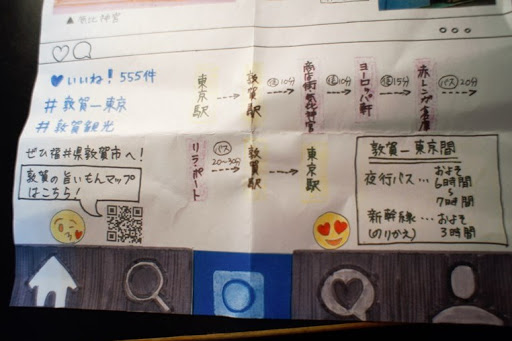 ▲気比神宮
いいね! 555件
#敦賀ー東京
#敦賀観光
ぜひ福井県敦賀市へ!
敦賀の旨いもんマップ
はこちら!
東京駅
敦賀駅
徒10分
商店街気比神宮
徒10分
ヨーロッパ軒
徒15分
赤レンガ倉庫
バス20分
リラ・ポート
バス
20~30分
敦賀駅
東京駅
敦賀ー東京間
夜行バス…およそ
6時間
~
7時間
新幹線…およそ
(のりかえ)3時間